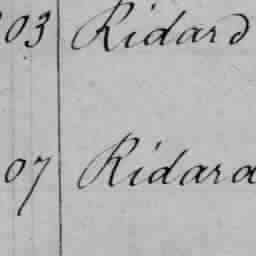 03 Ridard
07 Ridard